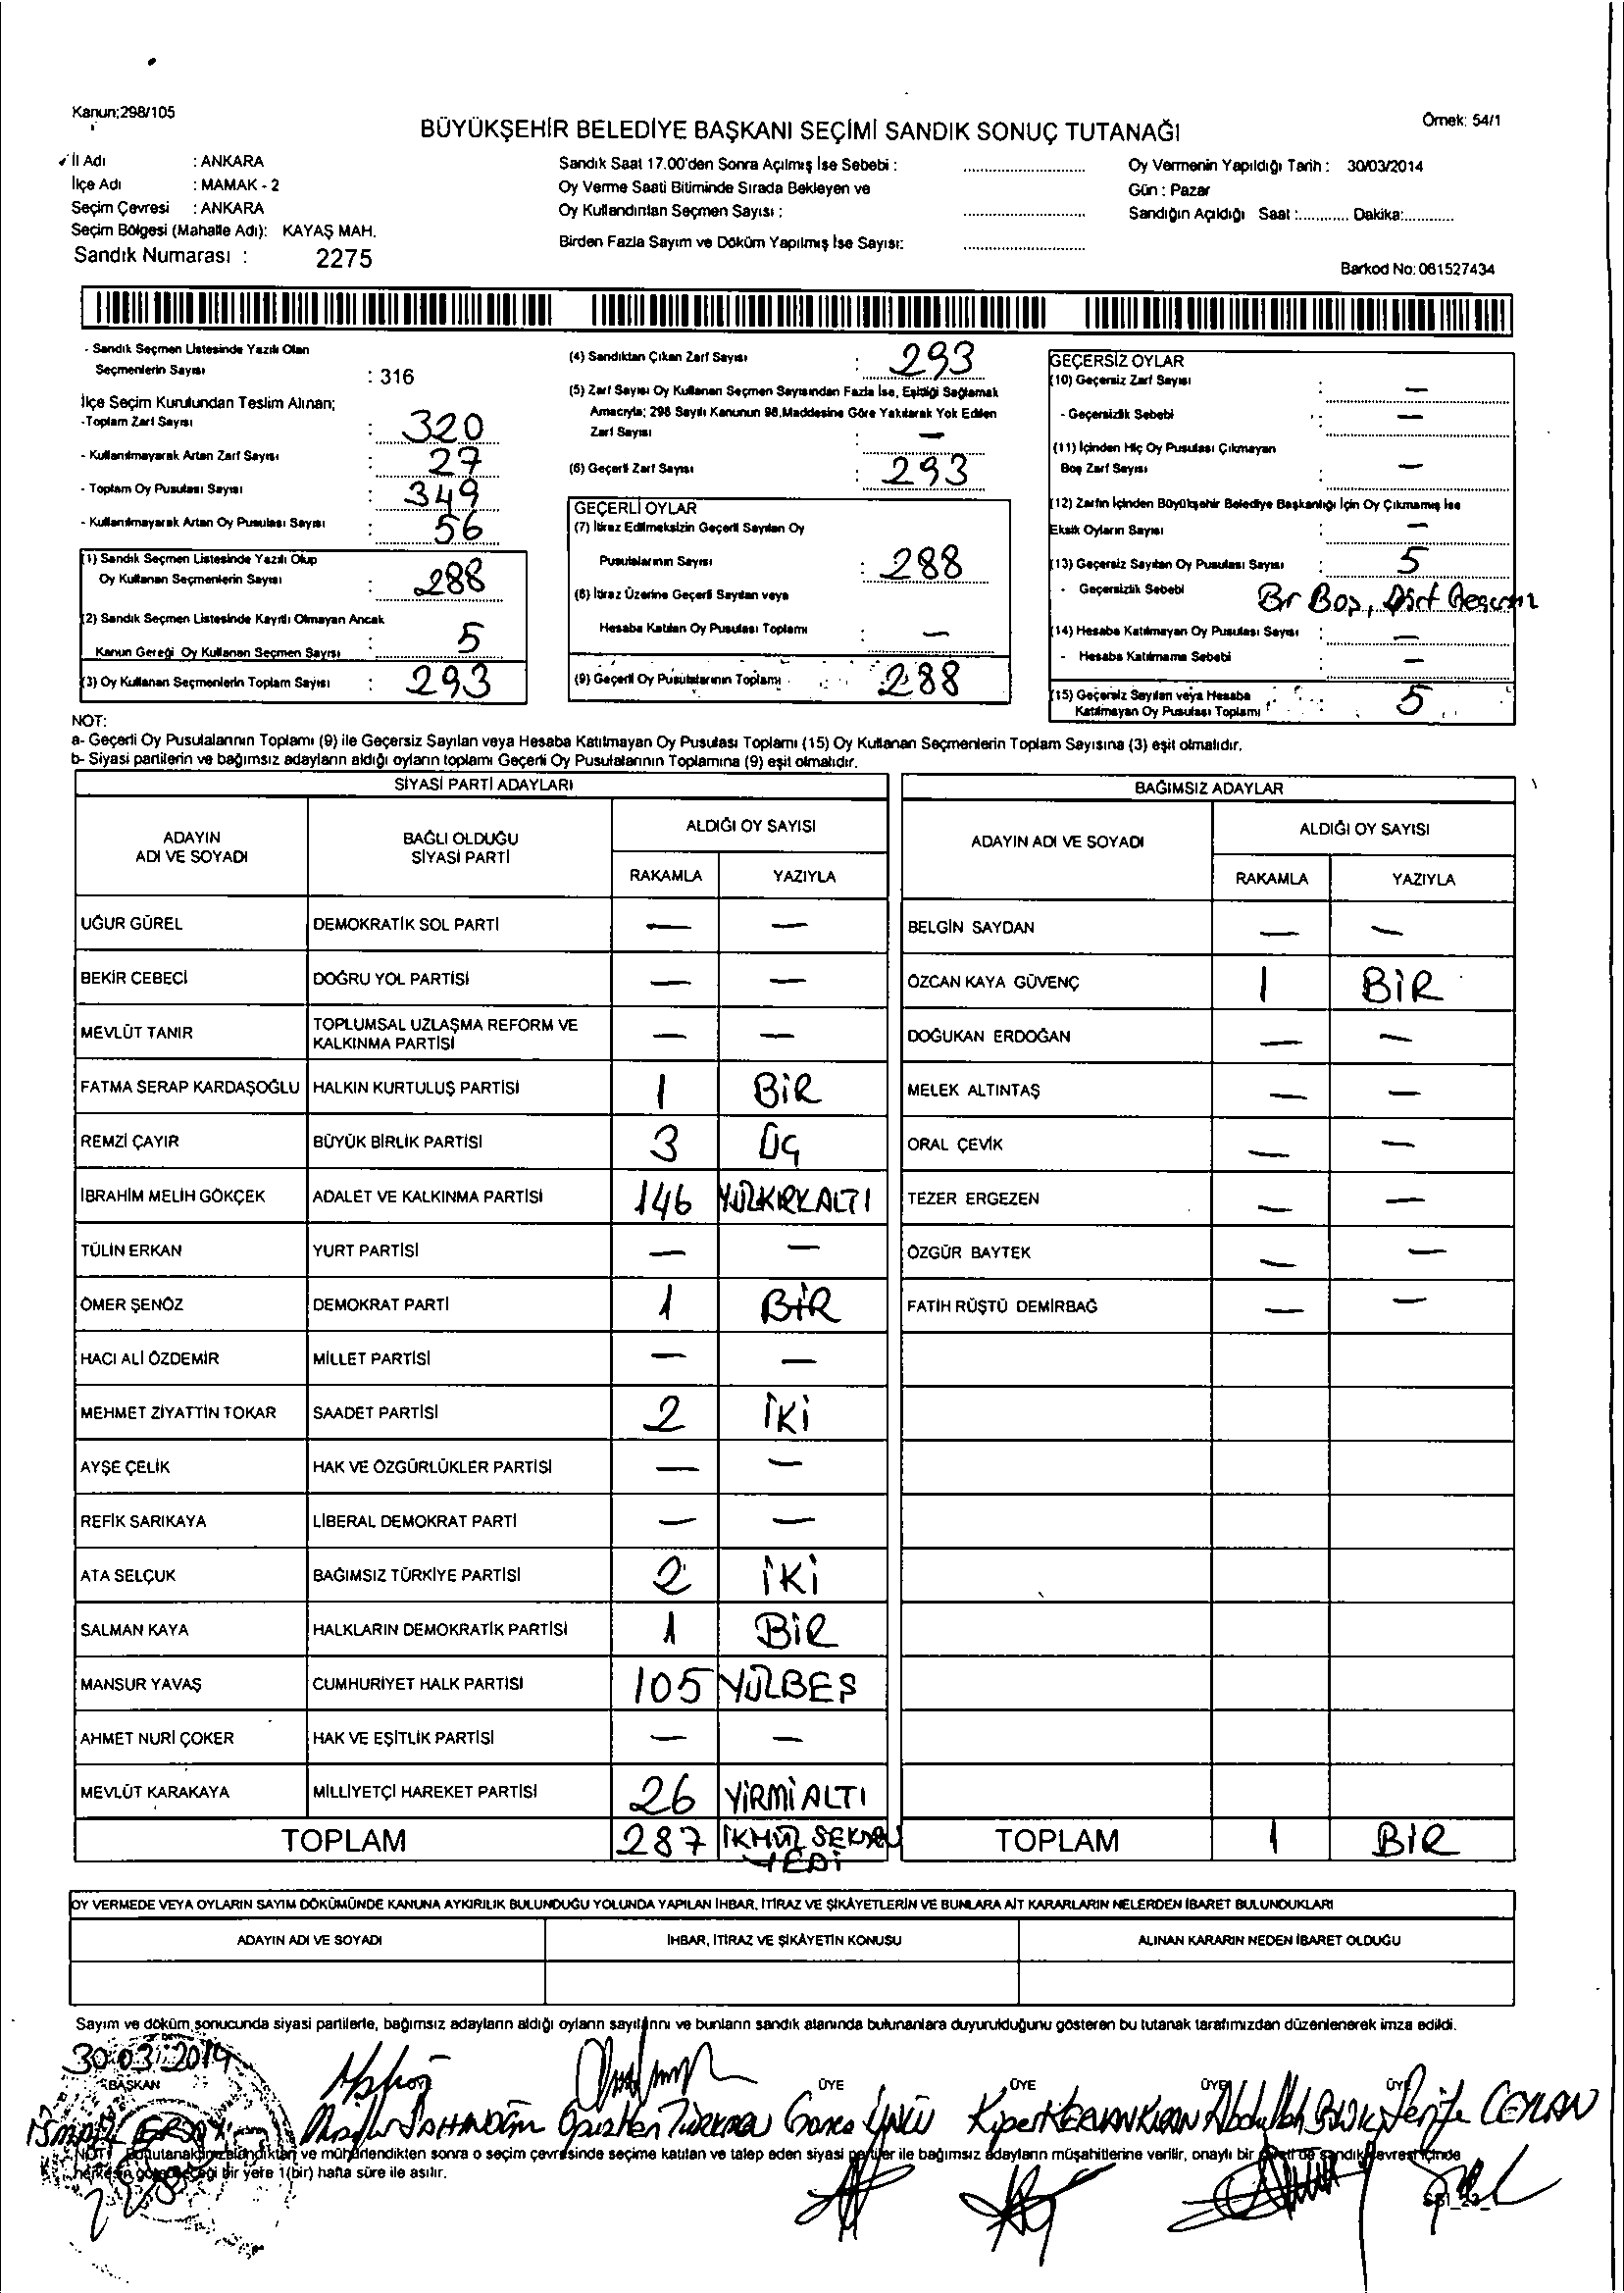 Kanun;298/105
Örnek: 54/1
BÜYÜKŞEHİR BELEDİYE BAŞKANI SEÇİMİ SANDIK SONUÇ TUTANAĞI
İl Adı : ANKARA
İlçe Adı : MAMAK - 2
Seçim Çevresi : ANKARA
Seçim Bölgesi (Mahalle Adı): KAYAŞ MAH.
Sandık Numarası : 2275
Sandık Saat 17.00'den Sonra Açılmış İse Sebebi : ..............................
Oy Verme Saati Bitiminde Sırada Bekleyen ve
Oy Kullandırılan Seçmen Sayısı : ..............................
Birden Fazla Sayım ve Döküm Yapılmış İse Sayısı: ..............................
Oy Vermenin Yapıldığı Tarih : 30/03/2014
Gün : Pazar
Sandığın Açıldığı Saat :............ Dakika:............
Barkod No: 061527434
- Sandık Seçmen Listesinde Yazılı Olan
Seçmenlerin Sayısı : 316
İlçe Seçim Kurulundan Teslim Alınan;
-Toplam Zarf Sayısı : 320
- Kullanılmayarak Artan Zarf Sayısı : 27
- Toplam Oy Pusulası Sayısı : 349
- Kullanılmayarak Artan Oy Pusulası Sayısı : 56
(1) Sandık Seçmen Listesinde Yazılı Olup
Oy Kullanan Seçmenlerin Sayısı : 288
(2) Sandık Seçmen Listesinde Kayıtlı Olmayan Ancak
Kanun Gereği Oy Kullanan Seçmen Sayısı : 5
(3) Oy Kullanan Seçmenlerin Toplam Sayısı : 293
(4) Sandıktan Çıkan Zarf Sayısı : 293
(5) Zarf Sayısı Oy Kullanan Seçmen Sayısından Fazla İse, Eşitliği Sağlamak
Amacıyla; 298 Sayılı Kanunun 98.Maddesine Göre Yakılarak Yok Edilen
Zarf Sayısı : —
(6) Geçerli Zarf Sayısı : 293
GEÇERLİ OYLAR
(7) İtiraz Edilmeksizin Geçerli Sayılan Oy
Pusulalarının Sayısı : 288
(8) İtiraz Üzerine Geçerli Sayılan veya
Hesaba Katılan Oy Pusulası Toplamı : —
(9) Geçerli Oy Pusulalarının Toplamı : 288
GEÇERSİZ OYLAR
(10) Geçersiz Zarf Sayısı : —
- Geçersizlik Sebebi : —
(11) İçinden Hiç Oy Pusulası Çıkmayan
Boş Zarf Sayısı : —
(12) Zarfın İçinden Büyükşehir Belediye Başkanlığı İçin Oy Çıkmamış İse
Eksik Oyların Sayısı : —
(13) Geçersiz Sayılan Oy Pusulası Sayısı : 5
- Geçersizlik Sebebi Bir Boş, Dört Geçersiz
(14) Hesaba Katılmayan Oy Pusulası Sayısı : —
- Hesaba Katılmama Sebebi : —
(15) Geçersiz Sayılan veya Hesaba
Katılmayan Oy Pusulası Toplamı : 5
NOT:
a- Geçerli Oy Pusulalarının Toplamı (9) ile Geçersiz Sayılan veya Hesaba Katılmayan Oy Pusulası Toplamı (15) Oy Kullanan Seçmenlerin Toplam Sayısına (3) eşit olmalıdır.
b- Siyasi partilerin ve bağımsız adayların aldığı oyların toplamı Geçerli Oy Pusulalarının Toplamına (9) eşit olmalıdır.
SİYASİ PARTİ ADAYLARI
ADAYIN ADI VE SOYADI BAĞLI OLDUĞU SİYASİ PARTİ ALDIĞI OY SAYISI
RAKAMLA YAZIYLA
UĞUR GÜREL DEMOKRATİK SOL PARTİ — —
BEKİR CEBECİ DOĞRU YOL PARTİSİ — —
MEVLÜT TANIR TOPLUMSAL UZLAŞMA REFORM VE KALKINMA PARTİSİ — —
FATMA SERAP KARDAŞOĞLU HALKIN KURTULUŞ PARTİSİ 1 BİR
REMZİ ÇAYIR BÜYÜK BİRLİK PARTİSİ 3 ÜÇ
İBRAHİM MELİH GÖKÇEK ADALET VE KALKINMA PARTİSİ 146 YÜZKIRKALTI
TÜLİN ERKAN YURT PARTİSİ — —
ÖMER ŞENÖZ DEMOKRAT PARTİ 1 BİR
HACI ALİ ÖZDEMİR MİLLET PARTİSİ — —
MEHMET ZİYATTİN TOKAR SAADET PARTİSİ 2 İKİ
AYŞE ÇELİK HAK VE ÖZGÜRLÜKLER PARTİSİ — —
REFİK SARIKAYA LİBERAL DEMOKRAT PARTİ — —
ATA SELÇUK BAĞIMSIZ TÜRKİYE PARTİSİ 2 İKİ
SALMAN KAYA HALKLARIN DEMOKRATİK PARTİSİ 1 BİR
MANSUR YAVAŞ CUMHURİYET HALK PARTİSİ 105 YÜZBEŞ
AHMET NURİ ÇOKER HAK VE EŞİTLİK PARTİSİ — —
MEVLÜT KARAKAYA MİLLİYETÇİ HAREKET PARTİSİ 26 YİRMİALTI
TOPLAM 287 İKİYÜZ SEKSEN
YEDİ
BAĞIMSIZ ADAYLAR
ADAYIN ADI VE SOYADI ALDIĞI OY SAYISI
RAKAMLA YAZIYLA
BELGİN SAYDAN — —
ÖZCAN KAYA GÜVENÇ 1 BİR
DOĞUKAN ERDOĞAN — —
MELEK ALTINTAŞ — —
ORAL ÇEVİK — —
TEZER ERGEZEN — —
ÖZGÜR BAYTEK — —
FATİH RÜŞTÜ DEMİRBAĞ — —
TOPLAM 1 BİR
OY VERMEDE VEYA OYLARIN SAYIM DÖKÜMÜNDE KANUNA AYKIRILIK BULUNDUĞU YOLUNDA YAPILAN İHBAR, İTİRAZ VE ŞİKÂYETLERİN VE BUNLARA AİT KARARLARIN NELERDEN İBARET BULUNDUKLARI
ADAYIN ADI VE SOYADI İHBAR, İTİRAZ VE ŞİKÂYETİN KONUSU ALINAN KARARIN NEDEN İBARET OLDUĞU
Sayım ve döküm sonucunda siyasi partilerle, bağımsız adayların aldığı oyların sayılarını ve bunların sandık alanında bulunanlara duyurulduğunu gösteren bu tutanak tarafımızdan düzenlenerek imza edildi.
30.03.2014
BAŞKAN ÜYE ÜYE ÜYE ÜYE
Abdullah Şerife CEYLAN
NOT: Bu tutanak imzalandıktan ve mühürlendikten sonra o seçim çevresinde seçime katılan ve talep eden siyasi partiler ile bağımsız adayların müşahitlerine verilir, onaylı bir sureti de sandık çevresi içinde
herkesin göreceği bir yere 1(bir) hafta süre ile asılır.